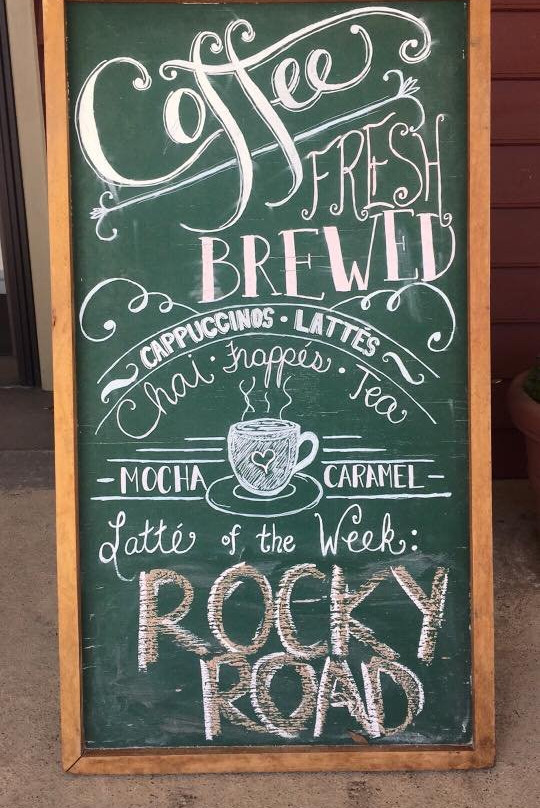 Coffee
FRESH
BREWED
CAPPUCCINOS · LATTÉS
Chai · Frappés · Tea
- MOCHA CARAMEL -
Latté of the Week:
ROCKY
ROAD